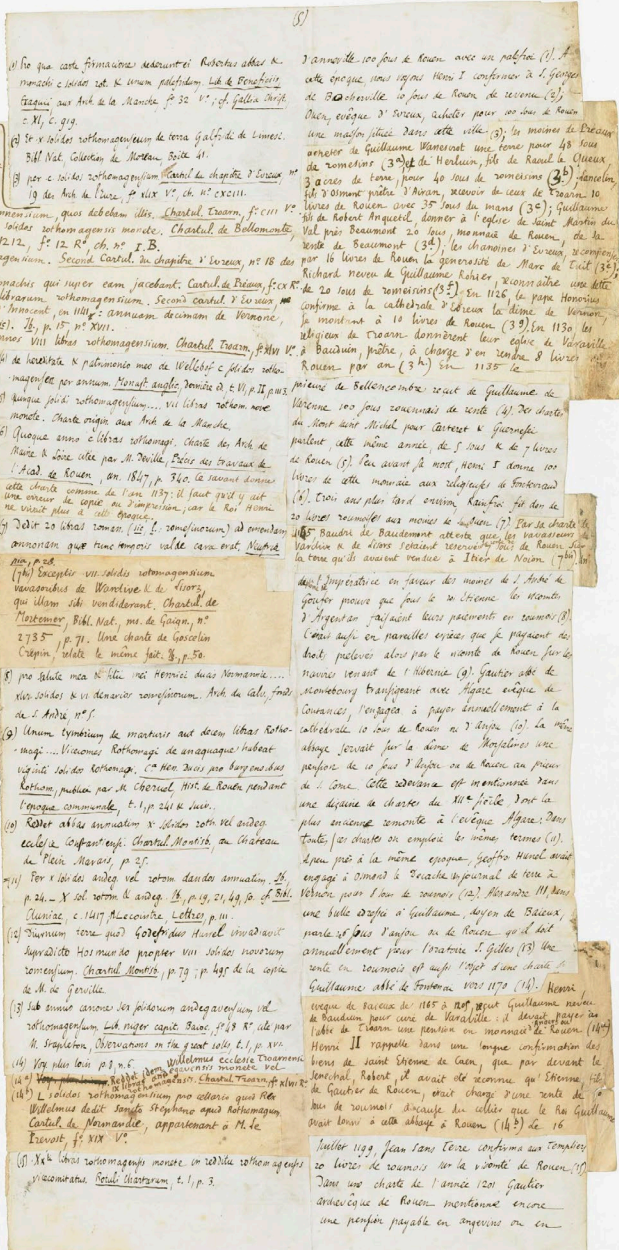 (5)
(1) Pro qua carte firmacione dederunt ei Robertus abbas &
monachi c solidos rot. & unum palefridum. Lib. de Beneficiis
aux Arch. de la Manche f° 32 V°; cf. Gallia Christ.
t. XI, c. 919.
(2) Et x solidos rothomagensium de terra Galfridi de Limesi.
Bibl Nat, Collection de Moreau, Boîte 41.
(3) per c solidos rothomagensium Cartul du chapitre d'Evreux, n°
19 des Arch de l'Eure, f° xlix V°, ch. n° CXCIII.
quos debebam illis. Chartul. Troarn, f° CIII V°
solidos rothomagensis monete. Chartul. de Bellomonte,
1212, f° 12 R°, ch. n° I. B.
Second Cartul. du chapitre d'Evreux, n° 18 des
qui super eam jacebant. Cartul. de Préaux, f° cx R°
librarum rothomagensium. Second cartul. d'Evreux,
Innocent, en 1141: annuam decimam de Vernone,
Ib, p. 15, n° XVII.
VIII libras rothomagensium. Chartul. Troarn, f° xlvi V°
(4) de hereditate & patrimonio meo de Wellebof c solidos rotho-
magenses per annum. Monast. anglic, dernière éd, t. VI, p. II, p. 1113.
(5) quinque solidi rothomagensium.... vii libras rothom. nove
monete. Charte origin. aux Arch. de la Manche.
(6) Quoque anno c libras rothomagi. Charte des Arch. de
Maine & Loire citée par M. Deville, Précis des travaux de
l'Acad. de Rouen, an. 1847, p. 340. le savant donne
cette charte comme de l'an 1137: il faut qu'il y ait
une erreur de copie ou d'impression, car le Roi Henri
ne vivait plus à cette époque.
(7) Dedit 20 libras roman. (lis. f.: romesinorum) ad emendam
annonam que tunc temporis valde cara erat, Neustria
pia, p. 28.
(7 bis) Exceptis vii. solidis rotomagensium
vavasoribus de Warclive & de Lisorz,
qui illam sibi vendiderant, Chartul. de
Mortemer, Bibl. Nat., ms. de Gaign., n°
2735, p. 71. Une charte de Goscelin
Crépin, relate le même fait. Ib, p. 50.
(8) pro salute mea & filii mei Henrici ducis Normannie....
xlvi solidos & vi denarios romesinorum. Arch du Calv., fonds
de S. André, n° 5.
(9) Unum tymbrium de marturis aut decem libras Rotho-
magi.... Vicecomes Rothomagi de unaquaque habeat
viginti solidos Rothomagi, Ca Hen. Ducis pro burgensibus
Rothom, publiée par M. Cheruel, Hist. de Rouen pendant
l'époque communale, t. 1, p. 241 & suiv.
(10) Reddet abbas annuatim x solidos roth. vel andeg
ecclesie Constantiensi. Chartul Montisb, au Château
de Plein Marais, p. 25.
(11) Per x solidos andeg. vel rotom. dandos annuatim. Ib.
p. 24. — X sol rotom & andeg. Ib, p. 19, 21, 49, 50. cf. Bibl.
Cluniac, c. 1417, A. Lecointre, Lettres, p. 111.
(12) Diurnum terre quod Godefridus Harel invadiavit
supradicto Hosmundo propter VIII solidos novorum
romensium. Chartul Montisb, p. 79; p. 495 de la copie
de M. de Gerville.
(13) Sub annuo canone sex solidorum andegavensium vel
rothomagensium. Lib. niger capit. Baioc, f° 48 R°, cité par
M. Stapleton, Observations on the great rolls, t. 1, p. xvi.
(14) Voy. plus loin p. 8, n. 6.
(14 a) Reddet idem Willelmus ecclesie Troarnensi
ix libras andegavensis monete vel
rothomagensis. Chartul. Troarn, f° xlvii R°
(14 b) L solidos rothomagensium pro cellario quod Rex
Willelmus dedit sancto Stephano apud Rothomagum,
Cartul. de Normandie, appartenant à M. le
Prevost, f° XIX V°.
(15) XX libras rothomagensis monete in redditu rothomagensis
vicecomitatus. Rotuli Chartarum, t. 1, p. 3.
d'anneville 100 sous de Rouen avec un palefroi (1). A
cette époque, nous voyons Henri I confirmer à S. Georges
de Bocherville 10 sous de Rouen de revenu (2);
Ouen, évêque d'Evreux, acheter pour 100 sous de Rouen
une maison située dans cette ville (3); les moines de Préaux
acheter de Guillaume Wanescrot une terre pour 48 sous
de romesins (3 a), & de Herluin, fils de Raoul le Queux,
3 acres de terre pour 40 sous de romeisins (3 b); Lancelin,
fils d'Osmont prêtre d'Airan, recevoir de ceux de Troarn 10
livres de Rouen avec 35 sous du mans (3 c); Guillaume
fils de Robert Anquetil, donner à l'église de Saint Martin du
Val près Beaumont 20 sous, monnaie de Rouen, de sa
rente de Beaumont (3 d); les chanoines d'Evreux, récompenser
par 16 livres de Rouen la générosité de Marc de Tuit (3 e);
Richard neveu de Guillaume Rohier, reconnaître une dette
de 20 sous de romeisins (3 f). En 1126, le pape Honorius
confirme à la cathédrale d'Evreux la dîme de Vernon
se montant à 10 livres de Rouen (3 g). En 1130, les
religieux de Troarn donnèrent leur église de Varaville
à Bauduin, prêtre, à charge d'en rendre 8 livres de
Rouen par an (3 h). En 1135 le
prieuré de Bellencombre reçut de Guillaume de
Varenne 100 sous rouennais de rente (4). Des chartes
du Mont saint Michel pour Carteret & Guernesei
parlent, cette même année, de 5 sous & de 7 livres
de Rouen (5). Peu avant sa mort, Henri I donna 100
livres de cette monnaie aux religieuses de Fontevraud
(6). Trois ans plus tard environ, Rainfroi fit don de
20 livres roumoises aux moines de (7). Par sa charte de
1165 Baudri de Baudemont atteste que les vavasseurs de
Varclive & de Lisors s'étaient réservé sous de Rouen sur
la terre qu'ils avaient vendue à Itier de Noion (7 bis)
l'Impératrice en faveur des moines de S. André de
Gouffer prouve que sous le roi Etienne les vicomtes
d'Argentan faisaient leurs paiements en roumois (8).
C'était aussi en pareilles espèces que se payaient des
droits prélevés alors par le vicomte de Rouen sur les
navires venant de l'Hibernie (9). Gautier abbé de
Montebourg transigeant avec Algare évêque de
Coutances, l'engagea à payer annuellement à la
cathédrale 10 sous de Rouen ou d'Anjou (10). La même
abbaye servait sur la dîme de Morsalines une
pension de 10 sous d'Anjou ou de Rouen au prieur
de S. Come. Cette redevance est mentionnée dans
une dizaine de chartes du XIIe siècle, dont la
plus ancienne remonte à l'évêque Algare: Dans
toutes ces chartes on emploie les mêmes termes (11).
A peu près à la même époque, Geoffroi Harel avait
engagé à Osmond le Derache un journal de terre à
Vernon pour 8 sous de roumois (12). Alexandre III, dans
une bulle adressée à Guillaume, doyen de Baieux,
parle de 6 sous d'anjou ou de Rouen qu'il doit
annuellement pour l'oratoire S. Gilles (13) Une
rente en roumois est aussi l'objet d'une charte de
Guillaume abbé de Fontenai vers 1170 (14). Henri
évêque de Baieux de 1165 à 1205, reçut Guillaume neveu
de Bauduin pour curé de Varaville: il devait payer à
l'abbé de Troarn une pension en monnaie d'Anjou ou de Rouen (14 a)
Henri II rappelle dans une longue confirmation des
biens de saint Etienne de Caen, que par devant le
sénéchal, Robert, il avait été reconnu qu'Etienne, fils
de Gautier de Rouen, était chargé d'une rente de
sous de roumois à cause du cellier que le Roi Guillaume
avait donné à cette abbaye à Rouen (14 b) Le 16
Juillet 1199, Jean Sans Terre confirma aux Templiers
20 livres de roumois sur la vicomté de Rouen (15)
Dans une charte de l'année 1201 Gautier
archevêque de Rouen mentionne encore
une pension payable en angevins ou en